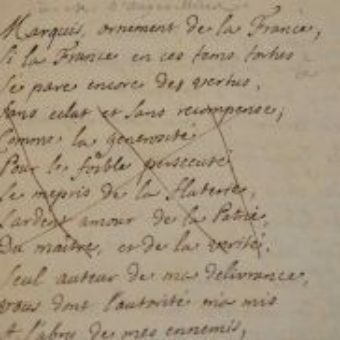 Marquis, ornement de la France,
Si la France en ces tems tortus
Se pare encore des vertus,
Sans eclat et sans recompense;
Comme la generosité
Pour le foible persecuté
Le mepris de la flaterie,
L'ardent amour de la Patrie,
Du maitre, et de la verité.
Seul auteur de ma delivrance,
Vous dont l'autorité m'a mis
A l'abri de mes ennemis,